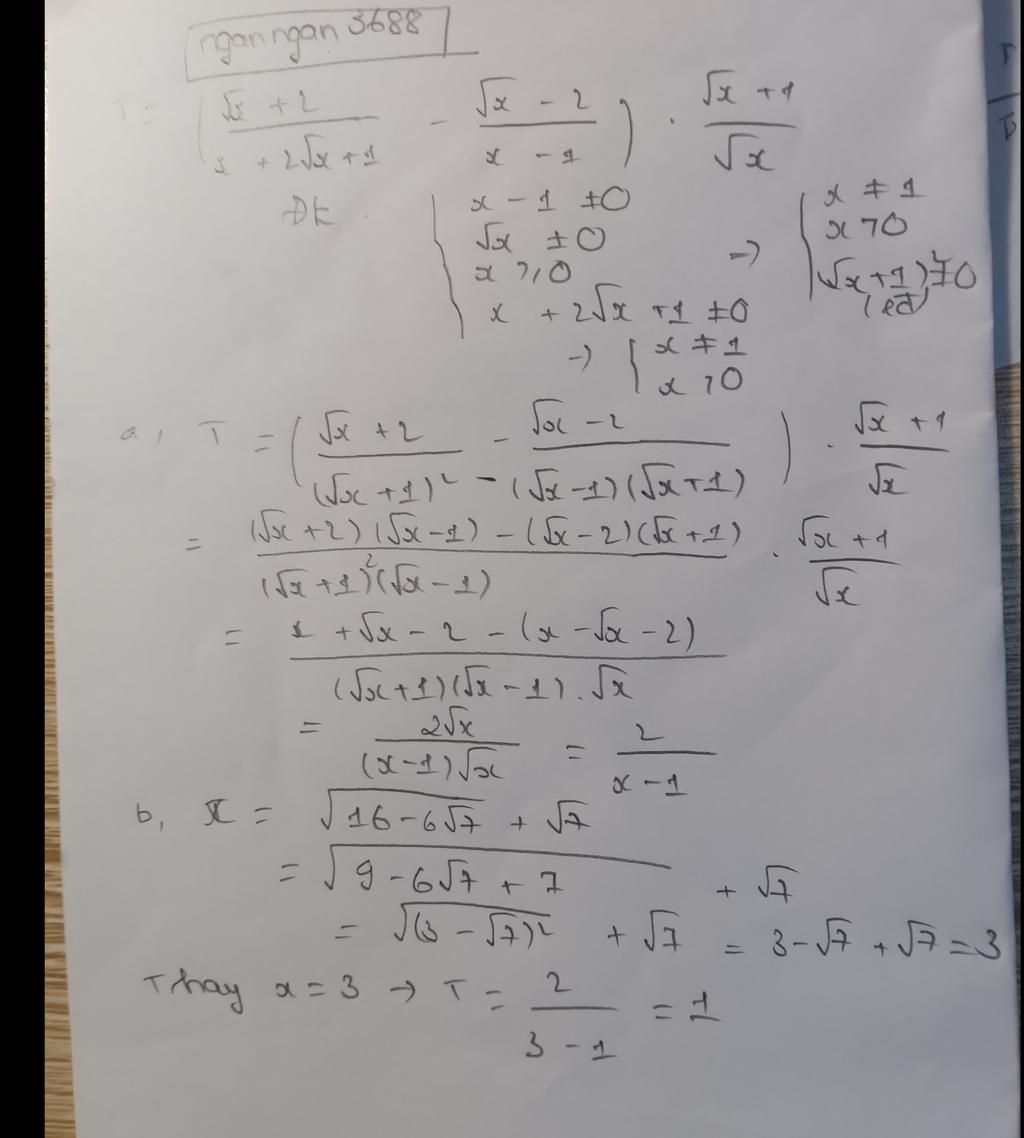 nganngan 3688
T = ( (√x + 2)/(x + 2√x + 1) - (√x - 2)/(x - 1) ) . (√x + 1)/√x
ĐK { x - 1 ≠ 0 ; √x ≠ 0 ; x ≥ 0 ; x + 2√x + 1 ≠ 0 → { x ≠ 1 ; x > 0 ; (√x + 1)² ≠ 0 (lđ)
→ { x ≠ 1 ; x > 0
a, T = ( (√x + 2)/(√x + 1)² - (√x - 2)/((√x - 1)(√x + 1)) ) . (√x + 1)/√x
= ((√x + 2)(√x - 1) - (√x - 2)(√x + 1))/((√x + 1)²(√x - 1)) . (√x + 1)/√x
= (x + √x - 2 - (x - √x - 2))/((√x + 1)(√x - 1).√x)
= 2√x/((x - 1)√x) = 2/(x - 1)
b, x = √(16 - 6√7) + √7
= √(9 - 6√7 + 7) + √7
= √((3 - √7)²) + √7 = 3 - √7 + √7 = 3
Thay x = 3 → T = 2/(3 - 1) = 1